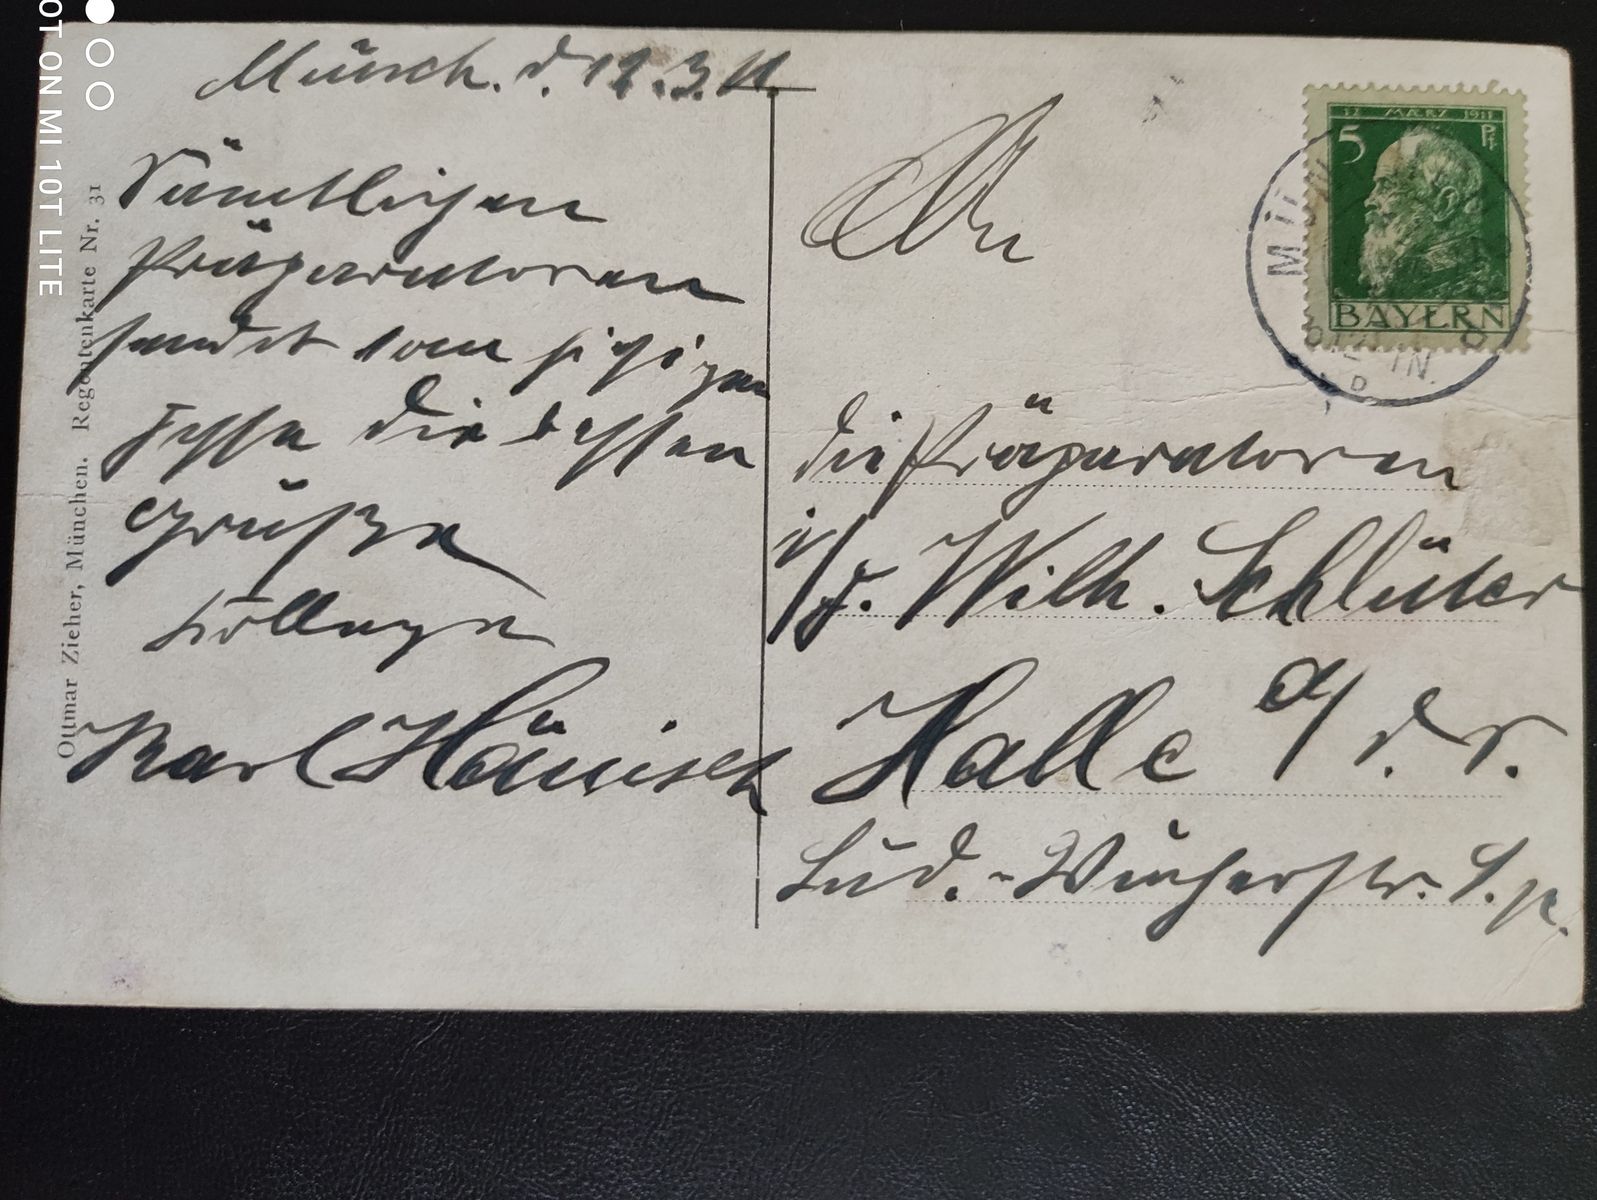 Münch. d. 12.3.11.
Sämtlichen
Präparatoren
sendet vom hiesigen
Feste die besten
Grüße
Kollege
Karl Hänisch
Ottmar Zieher, München. Regentenkarte Nr. 31
An
die Präparatoren
i/F. Wilh. Schlüter
Halle a/d. S.
Lud.-Wuchererstr. 9. p.
12 MÆRZ 1911
5 Pf
BAYERN
MÜN
OT ON MI 10T LITE